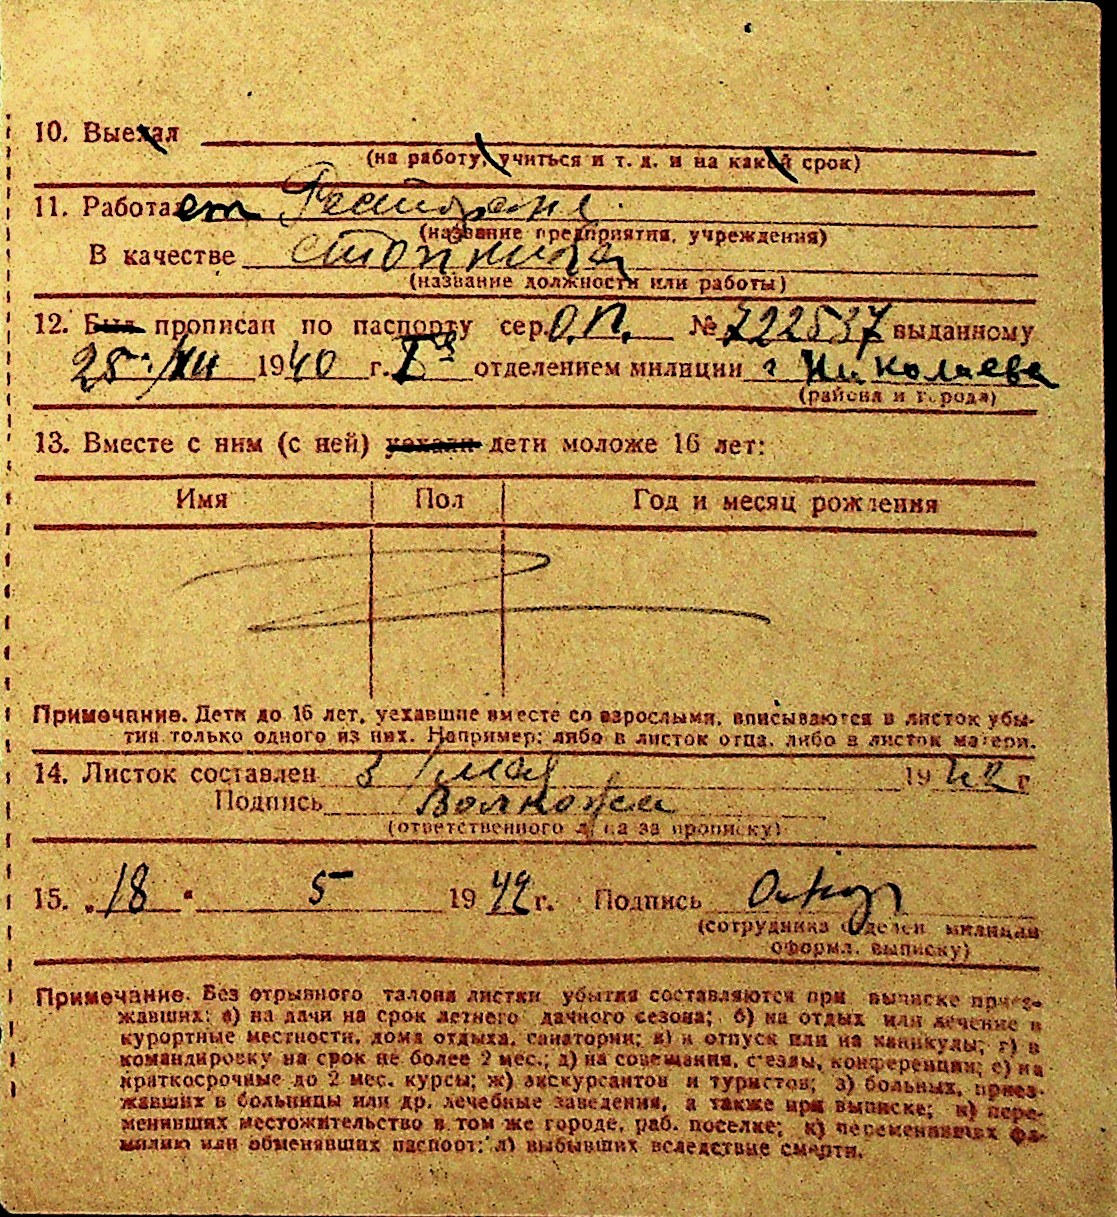 10. Выехал
(на работу, учиться и т. д. и на какой срок)
11. Работает Ресторане
(название предприятия, учреждения)
В качестве
(название должности или работы)
12. Был прописан по паспорту сер. О.П. № 722537 выданному
25 /XII 1940 г. I отделением милиции г Николаева
(района и города)
13. Вместе с ним (с ней) уехали дети моложе 16 лет:
Имя Пол Год и месяц рождения
Примечание. Дети до 16 лет, уехавшие вместе со взрослыми, вписываются в листок убы-
тия только одного из них. Например: либо в листок отца, либо в листок матери.
14. Листок составлен 3 / мая 1942 г
Подпись
(ответственного лица за прописку)
15. „18“ 5 1942 г. Подпись
(сотрудника отделен милиции
оформл. выписку)
Примечание. Без отрывного талона листки убытия составляются при выписке приез-
жавших: а) на дачи на срок летнего дачного сезона; б) на отдых или лечение в
курортные местности, дома отдыха, санатории; в) в отпуск или на каникулы; г) в
командировку на срок не более 2 мес.; д) на совещания, съезды, конференции; е) на
краткосрочные до 2 мес. курсы; ж) экскурсантов и туристов; з) больных, приез-
жавших в больницы или др. лечебные заведения, а также при выписке; и) пере-
менивших местожительство в том же городе, раб. поселке; к) переменивших фа-
милию или обменявших паспорт; л) выбывших вследствие смерти.